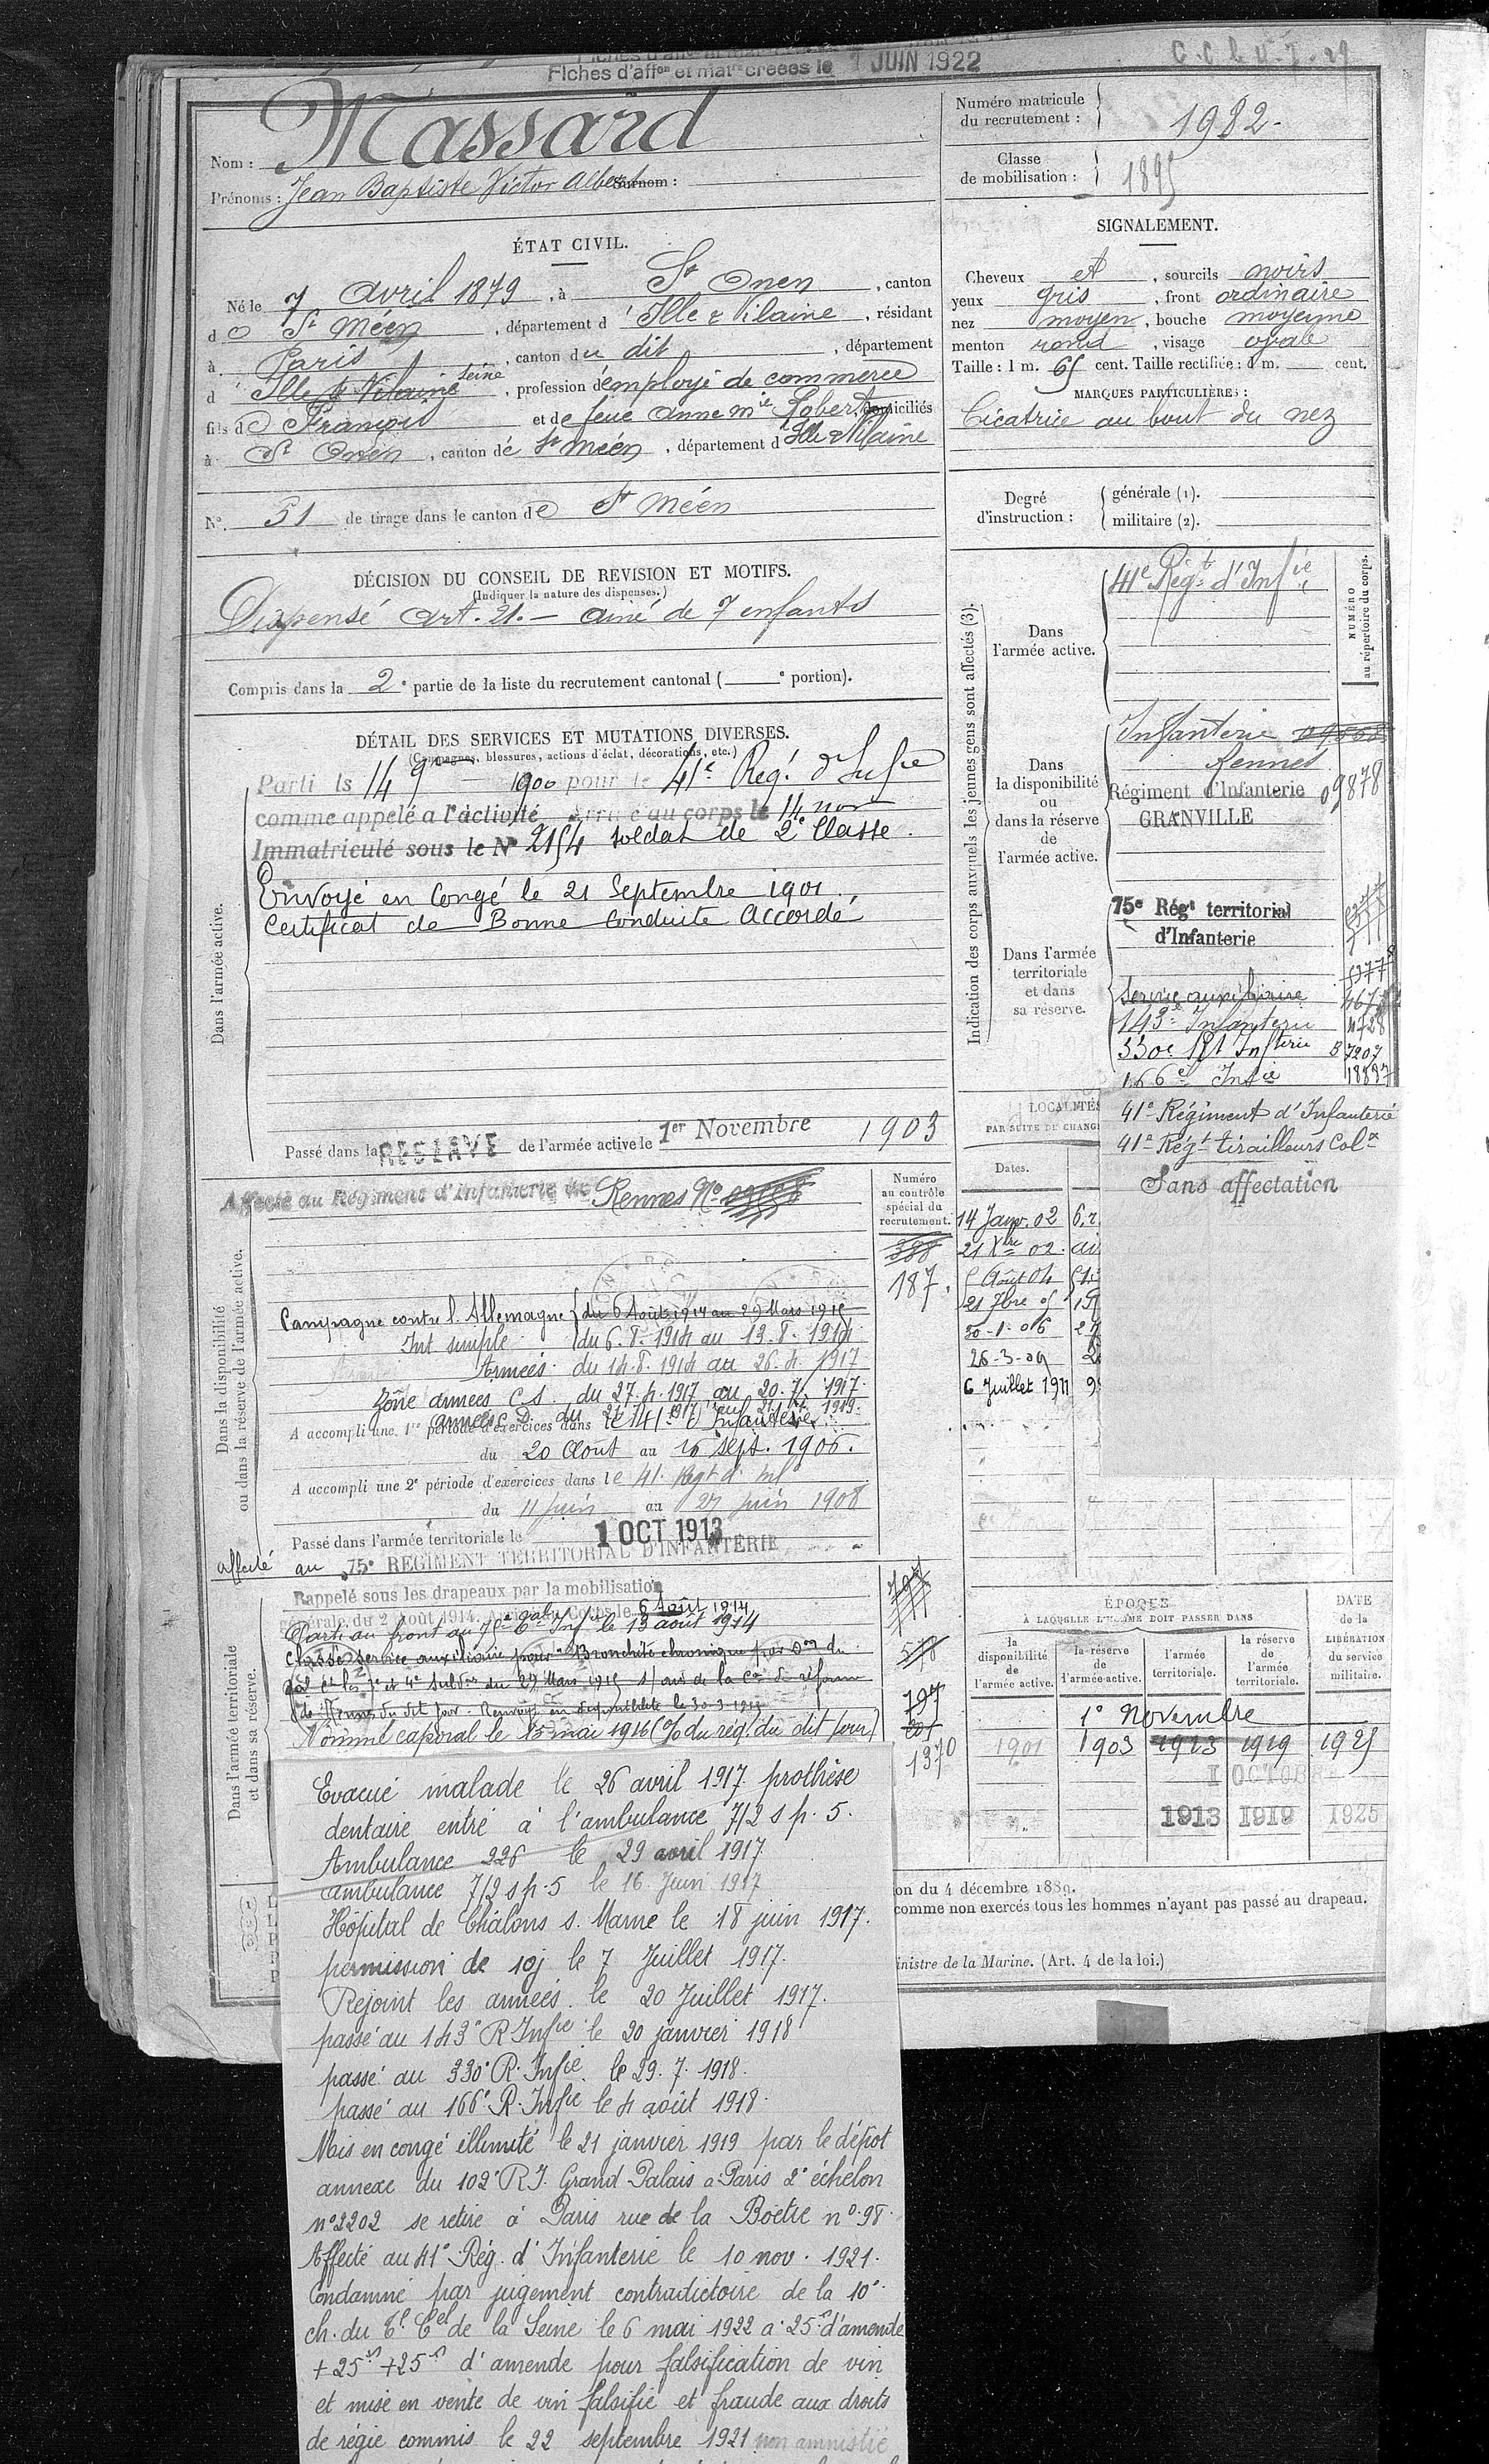 Fiches d'aff^on et mat^re créées le 7 JUIN 1922
Nom : Massard
Prénoms : Jean Baptiste Victor Albert Surnom :
Numéro matricule du recrutement : 1982
Classe de mobilisation : 1895
ÉTAT CIVIL.
Né le 7 avril 1879, à St Onen, canton
de St Méen, département d'Ille & Vilaine, résidant
à Paris, canton du dit, département
d'Ille & Vilaine Seine, profession d'employé de commerce
fils de François et de feue Anne Mie Robert, domiciliés
à St Onen, canton de St Méen, département d'Ille & Vilaine
N° 51 de tirage dans le canton de St Méen
SIGNALEMENT.
Cheveux et, sourcils noirs
yeux gris, front ordinaire
nez moyen, bouche moyenne
menton rond, visage ovale
Taille : 1 m. 65 cent. Taille rectifiée : 1 m. cent.
MARQUES PARTICULIÈRES :
Cicatrice au bout du nez
Degré d'instruction : générale (1).
militaire (2).
DÉCISION DU CONSEIL DE REVISION ET MOTIFS.
(Indiquer la nature des dispenses.)
Dispensé art. 21. — ainé de 7 enfants
Compris dans la 2e partie de la liste du recrutement cantonal ( e portion).
DÉTAIL DES SERVICES ET MUTATIONS DIVERSES.
(Campagnes, blessures, actions d'éclat, décorations, etc.)
Dans l'armée active.
Parti le 14 9bre 1900 pour le 41e Reg. d'Infie
comme appelé à l'activité Arrivé au corps le 14 nov
Immatriculé sous le N° 2154 soldat de 2e Classe.
Envoyé en Congé le 21 Septembre 1901.
Certificat de Bonne Conduite Accordé
Passé dans la RÉSERVE de l'armée active le 1er Novembre 1903
Indication des corps auxquels les jeunes gens sont affectés (3).
NUMÉRO au répertoire du corps.
Dans l'armée active.
41e Régt d'Infie
Dans la disponibilité ou dans la réserve de l'armée active.
Infanterie
Rennes
Régiment d'Infanterie 09878
GRANVILLE
Dans l'armée territoriale et dans sa réserve.
75e Régt territorial
d'Infanterie
Service auxiliaire
143e Infanterie 4728
330e Rt Infterie B 7207
166e Infie 18837
41e Régiment d'Infanterie
41e Régt tirailleurs Colx
Sans affectation
LOCALITÉS
PAR SUITE DE CHANG
Dates.
14 Janv. 02
21 Xbre 02
5 Août 04
21 7bre 05
20-1-06
26-3-09
6 Juillet 1911
Dans la disponibilité ou dans la réserve de l'armée active.
Affecté au Régiment d'Infanterie de Rennes No
Numéro au contrôle spécial du recrutement.
388
187.
Campagne contre l'Allemagne du 6 Août 1914 au 29 Mars 1915
Int simple du 6.8.1914 au 13.8.1914
Armées du 14.8.1914 au 26.4.1917
Zône armées C.S. du 27.4.1917 au 20.7.1917
A accompli une 1re période d'exercices dans le 41e d'Infanterie
du 20 Août au 16 sept. 1906.
A accompli une 2e période d'exercices dans le 41. Regt d'Infie
du 11 juin au 27 juin 1908
Passé dans l'armée territoriale le 1 OCT 1913
affecté au 75e RÉGIMENT TERRITORIAL D'INFANTERIE
Dans l'armée territoriale et dans sa réserve.
Rappelé sous les drapeaux par la mobilisation
générale du 2 août 1914. Arrivé au Corps le 6 Août 1914
Parti au front au 75e Tal Infie le 13 août 1914
Classé service auxiliaire pour Bronchite chronique par Don du
Gal Ct les 3e et 4e Subdons du 29 Mars 1915 s/ avis de la Con de réforme
de Rennes du dit jour. Renvoyé en disponibilité le 30-3-1915
Nommé caporal le 15 mai 1916 (O/ du rég. du dit jour)
797
578
797
1370
Evacué malade le 26 avril 1917 prothèse
dentaire entré à l'ambulance 7/2 s p. 5.
Ambulance 226 le 29 avril 1917
ambulance 7/2 s p. 5 le 16 Juin 1917
Hôpital de Châlons s. Marne le 18 juin 1917.
permission de 10j le 7 Juillet 1917.
Rejoint les armées le 20 Juillet 1917.
passé au 143e R Infie le 20 janvier 1918
passé au 330e R. Infie le 29. 7. 1918.
passé au 166e R. Infie le 4 août 1918.
Mis en congé illimité le 21 janvier 1919 par le dépôt
annexe du 102e R.I. Grand Palais à Paris 2e échelon
n° 2202 se retire à Paris rue de la Boëtie n° 98.
Affecté au 41e Rég. d'Infanterie le 10 nov. 1921.
Condamné par jugement contradictoire de la 10e
ch. du Tl Cel de la Seine le 6 mai 1922 à 25 fr d'amende
+ 25 fr + 25 fr d'amende pour falsification de vin
et mise en vente de vin falsifié et fraude aux droits
de régie commis le 22 septembre 1921 non amnistié
ÉPOQUE
À LAQUELLE L'HOMME DOIT PASSER DANS
la disponibilité de l'armée active.
la réserve de l'armée active.
l'armée territoriale.
la réserve de l'armée territoriale.
DATE de la LIBÉRATION du service militaire.
1er Novembre
1901 1903 1913 1919 1925
1 OCTOBRE
1913 1919 1925
on du 4 décembre 1889.
comme non exercés tous les hommes n'ayant pas passé au drapeau.
inistre de la Marine. (Art. 4 de la loi.)